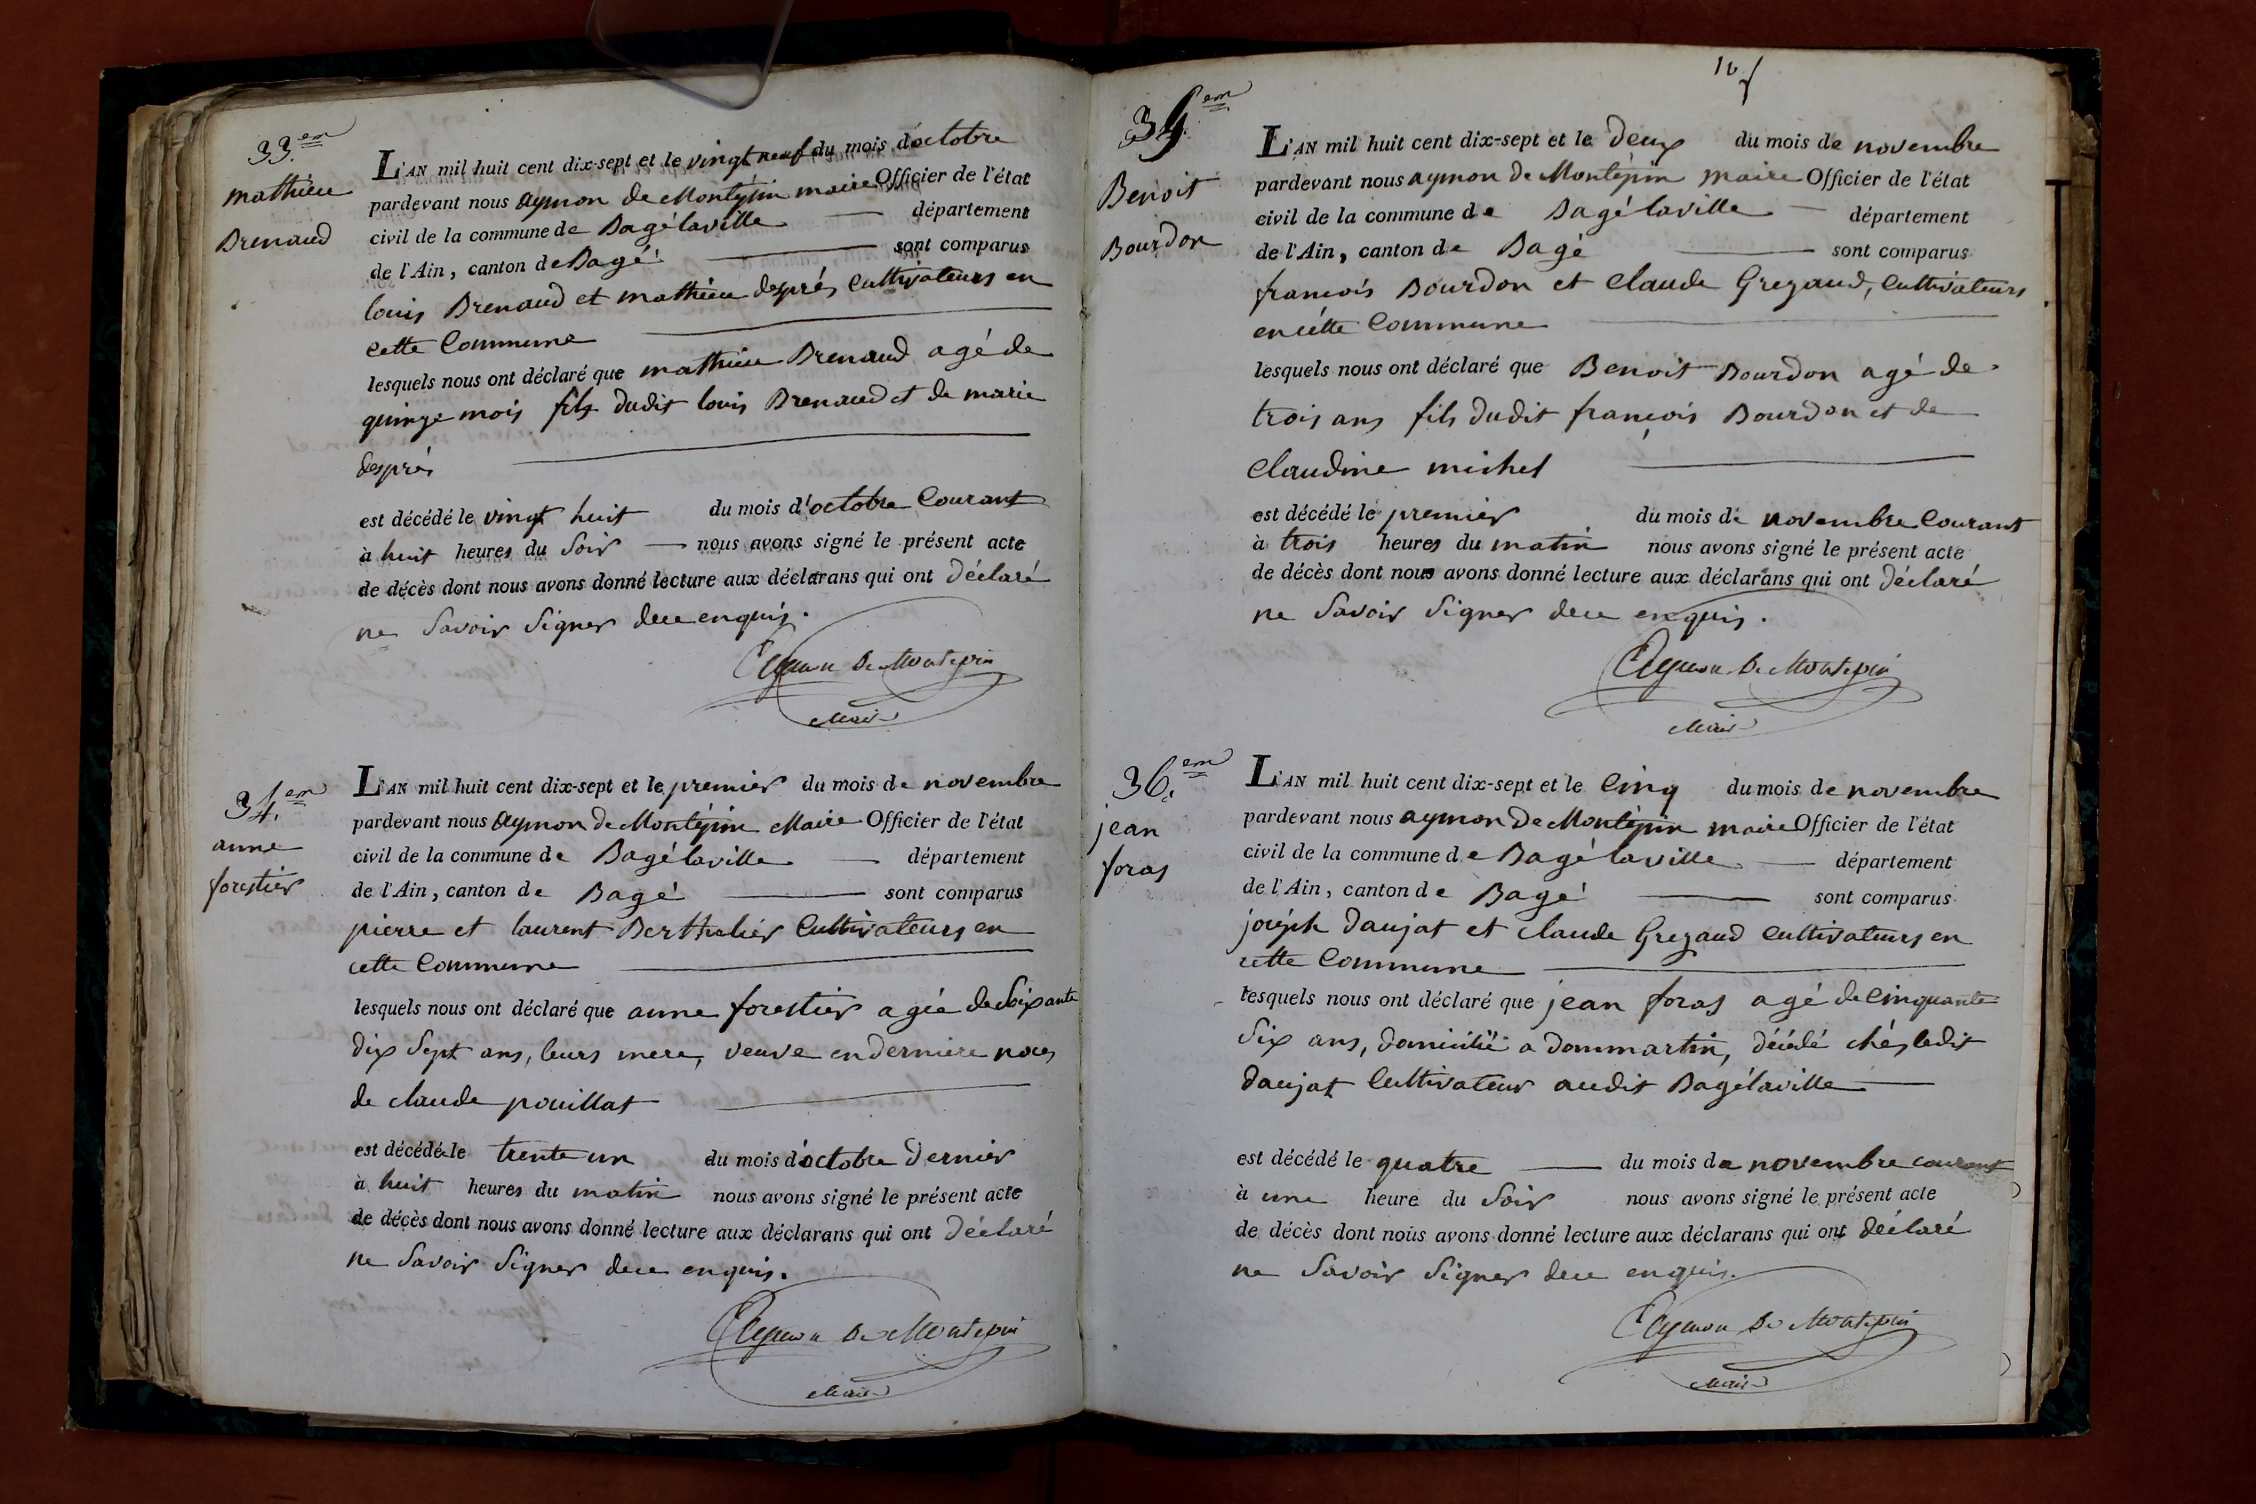 33.em
mathieu
Brenaud
L'AN mil huit cent dix-sept et le vingt neuf du mois d'octobre
pardevant nous aymon de Montépin maire Officier de l'état
civil de la commune de Bagélaville département
de l'Ain, canton de Bagé sont comparus
louis Brenaud et mathieu després Cultivateurs en
cette Commune
lesquels nous ont déclaré que mathieu Brenaud agé de
quinze mois fils dudit louis Brenaud et de marie
després
est décédé le vingt huit du mois d'octobre Courant
à huit heures du Soir nous avons signé le présent acte
de décès dont nous avons donné lecture aux déclarans qui ont déclaré
ne Savoir Signer de ce enquis.
Aymon De Montepin
Maire
34.em
anne
forestier
L'AN mil huit cent dix-sept et le premier du mois de novembre
pardevant nous aymon de Montépin Maire Officier de l'état
civil de la commune de Bagélaville département
de l'Ain, canton de Bagé sont comparus
pierre et laurent Berthelier Cultivateurs en
cette Commune
lesquels nous ont déclaré que anne forestier agée de Soixante
dix Sept ans, leurs mere, veuve en derniere noces
de claude pouillat
est décédé le trente un du mois d'octobre dernier
à huit heures du matin nous avons signé le présent acte
de décès dont nous avons donné lecture aux déclarans qui ont déclaré
ne Savoir Signer de ce enquis.
Aymon De Montepin
Maire
35.em
Benoit
Bourdon
L'AN mil huit cent dix-sept et le deux du mois de novembre
pardevant nous aymon de Montépin maire Officier de l'état
civil de la commune de Bagélaville département
de l'Ain, canton de Bagé sont comparus
francois Bourdon et Claude Grezaud, Cultivateurs
en cétte Commune
lesquels nous ont déclaré que Benoit Bourdon agé de
trois ans fils dudit françois Bourdon et de
Claudine michel
est décédé le premier du mois de novembre Courant
à trois heures du matin nous avons signé le présent acte
de décès dont nous avons donné lecture aux déclarans qui ont déclaré
ne Savoir Signer de ce enquis.
Aymon De Montepin
Maire
36.em
jean
foras
L'AN mil huit cent dix-sept et le Cinq du mois de novembre
pardevant nous aymon de Montépin maire Officier de l'état
civil de la commune de Bagélaville département
de l'Ain, canton de Bagé sont comparus
joséph daujat et claude Grezaud Cultivateurs en
cette Commune
lesquels nous ont déclaré que jean foras agé de Cinquante
Six ans, domicilié a dommartin, décédé chés ledit
daujat Cultivateur audit Bagélaville
est décédé le quatre du mois de novembre courant
à une heure du Soir nous avons signé le présent acte
de décès dont nous avons donné lecture aux déclarans qui ont déclaré
ne Savoir Signer de ce enquis.
Aymon De Montepin
Maire